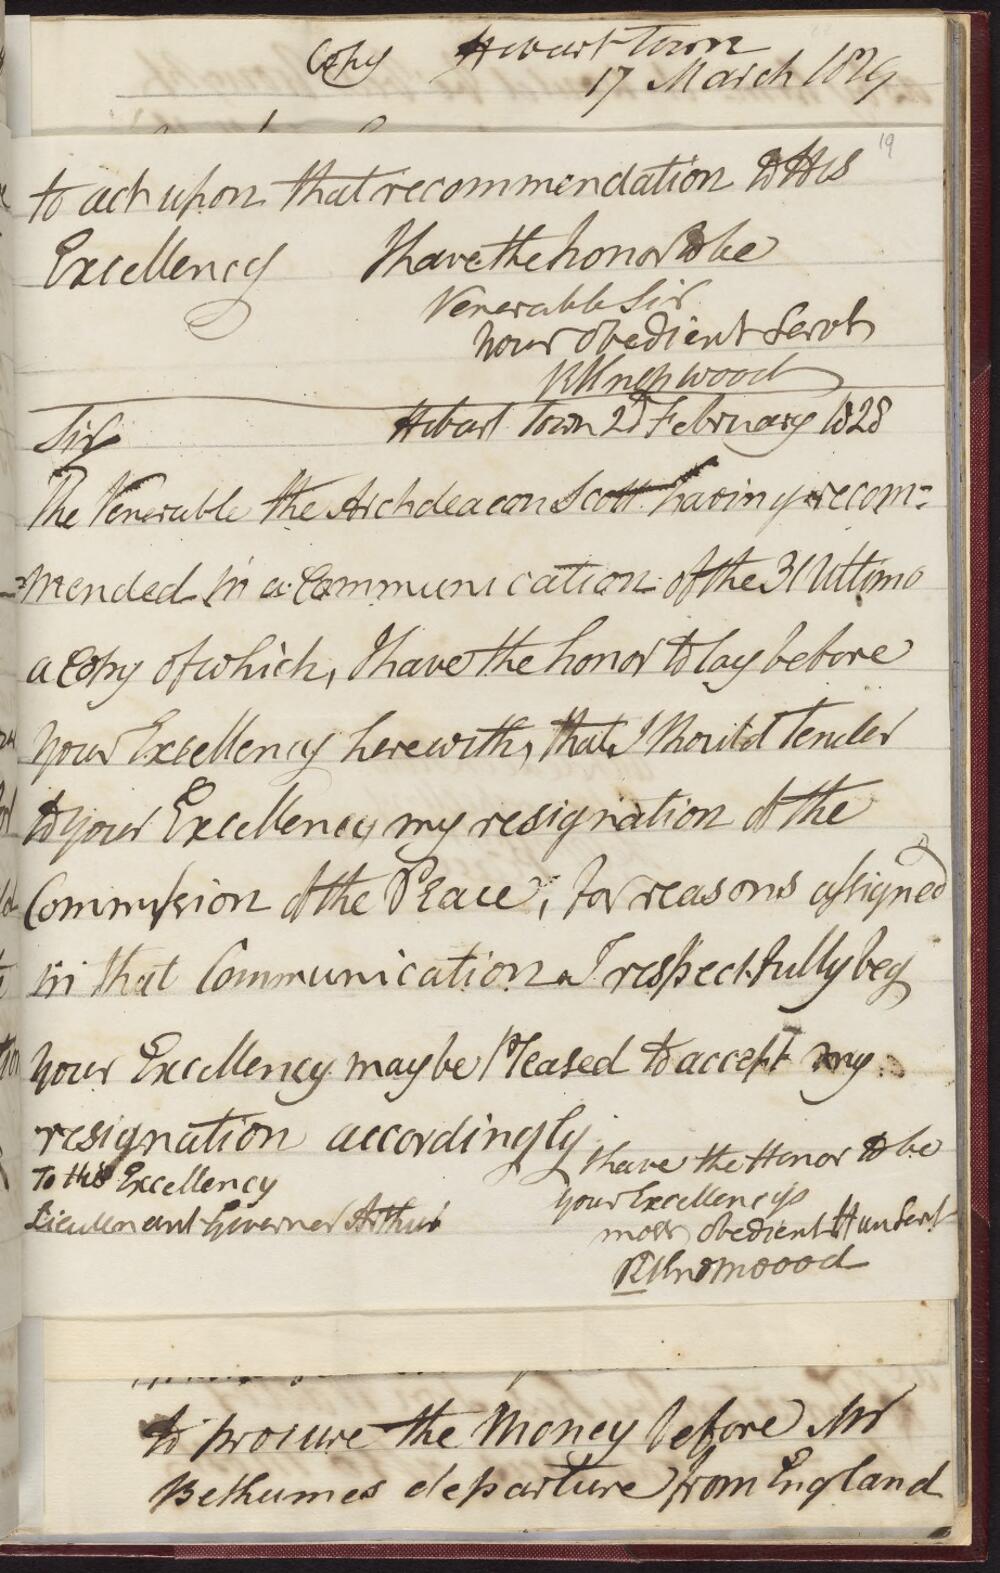 Copy Hobart Town
17 March 1829
19
to act upon that recommendation to His
Excellency I have the honor to be
Venerable Sir
Your obedient Servt
R Knopwood
Sir Hobart Town 2d February 1828
The Venerable the Archdeacon Scott having recom=
=mended in a Communication of the 31 Ultimo
a Copy of which, I have the honor to lay before
Your Excellency herewith, that I should Tender
to your Excellency my resignation of the
Commission of the Peace, for reasons assigned
in that Communication I respectfully beg
Your Excellency may be Pleased to accept my
resignation accordingly
I have the Honor to be
Your Excellencys
most obedient Hum Sert
R Knopwood
To His Excellency
Lieutenant Governor Arthur
to procure the Money before Mr
Bethumes departure from England